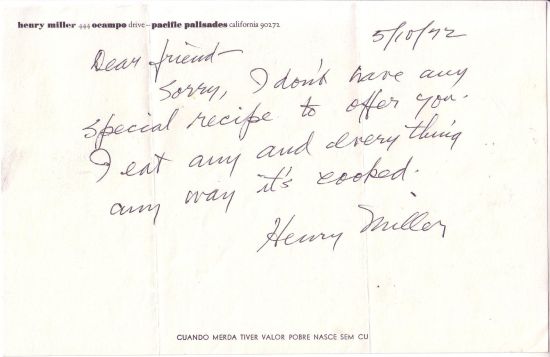 henry miller 444 ocampo drive – pacific palisades california 90272
5/10/72
Dear friend –
Sorry, I don't have any
special recipe to offer you.
I eat any and everything
any way it's cooked.
Henry Miller
CUANDO MERDA TIVER VALOR POBRE NASCE SEM CU